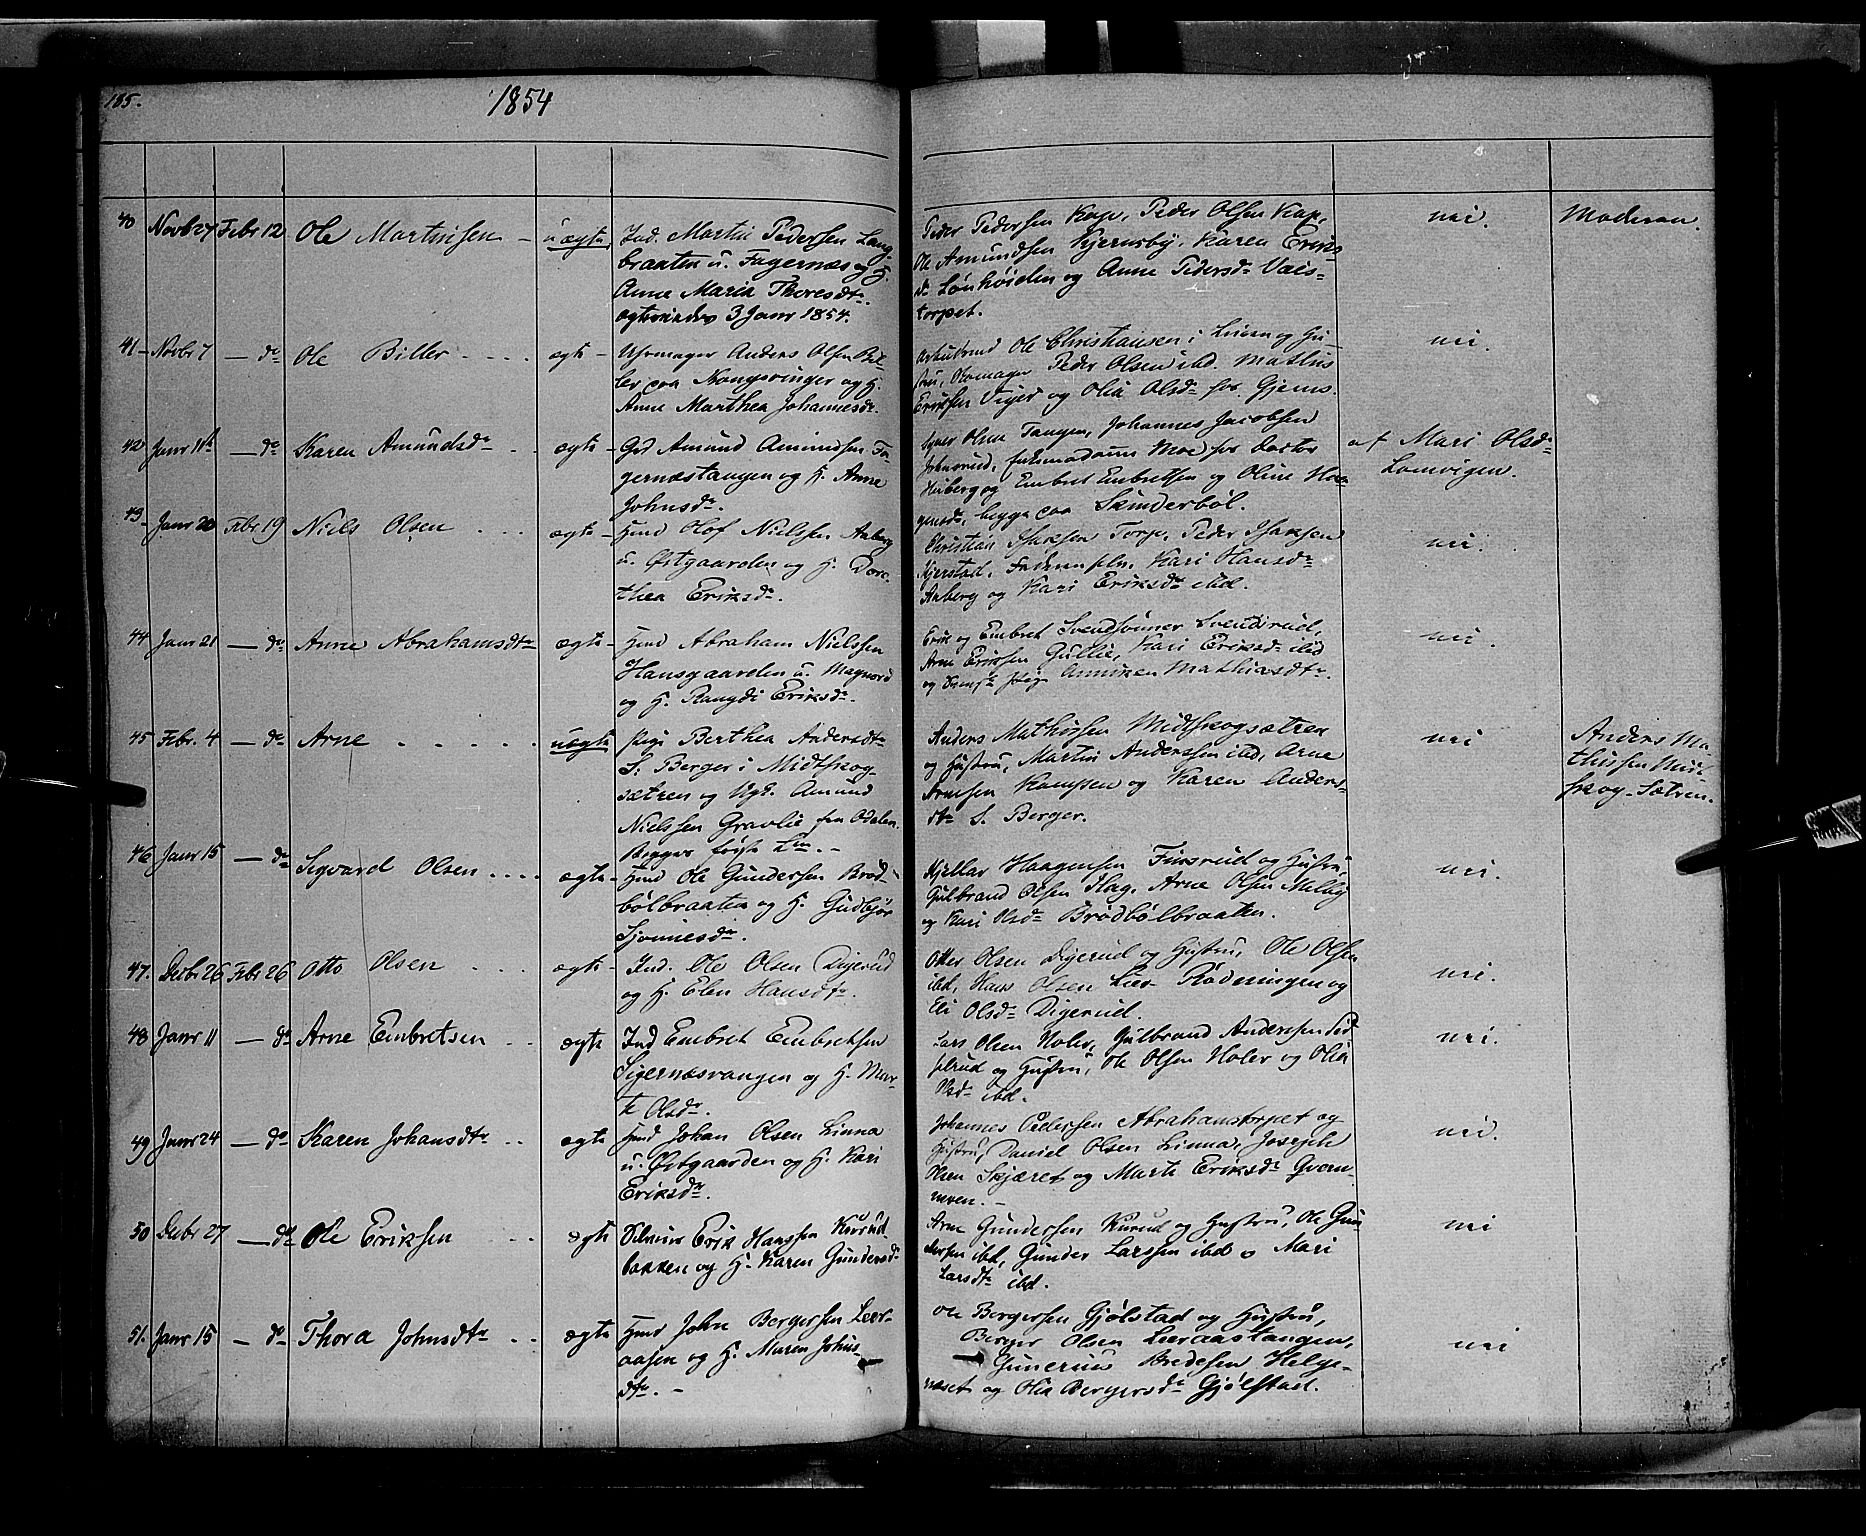 185.
1854
40 Novb 27 Febr 12 Ole Martinsen - uægte Ind. Martin Pedersen Lang-
braaten u. Fagernæs og H.
Anne Maria Thoresdtr.
ægteviede 3 Janr 1854.
Peder Pedersen Kap, Peder Olsen Kap,
Ole Amundsen Kjernsby, Karen Eriks
dr Lönhöiden og Anne Pedersdr Vais-
torpet.
nei. Moderen.
41 - Novbr 7 — do Ole Biller . . . . ægte - Uhrmager Anders Olsen Bil-
ler paa Kongsvinger og H.
Anne Marthea Johannesdr.
Ole Christiansen i Byen og Hu-
stru, Peder Olsen ibd. Mathis
Eriksen Viger og Olia Olsdr
nei.
42 Janr 11te — do Karen Amundsdr . . ægte - Amund Amundsen Fa-
gernæstangen og H. Anne
Johnsdr.
Olsen Tangen, Johannes Jacobsen
Moe for Doctor
og Embret Embretsen og Oline
begge paa Skinderböl.
af Mari Olsdr
Lomvigen.
43 - Janr 20 Febr 19 Niels Olsen . . . ægte - Hmd Olof Nielssen Aaberg
u. Østgaarden og H. Doro-
thea Eriksdr.
Christian Isaksen Torp, Peder Isaksen
Kjerstad, Kari Hansdr
Aaberg og Kari Eriksdr ibd.
nei.
44 Janr 21 — do Anne Abrahamsdtr ægte - Hmd Abraham Nielssen
Hansgaarden u. Magnord
og H. Rangdi Eriksdr.
Erik og Embret Svendsönner Svendsrud,
Arne Eriksen Gullie, Kari Eriksdr ibd
og Anniken Mathiasdtr.
nei.
45 Febr. 4 — do Arne . . . . . . uægte Pige Berthea Andersdtr
S. Berger i Midtskog-
sætren og Ugk. Amund
Nielssen Gravlie fra Odalen.
Begges förste Lm. -
Anders Mathissen Midtskogsætren
og Hustru, Martin Anderssen ibd, Arne
Arnesen Kampsen og Karen Anders-
dtr S. Berger.
nei Anders Ma-
thissen Mid-
skog-Sætren.
46 Janr 15 — do Sigvard Olsen . . . . ægte - Hmd Ole Gundersen Bröd-
bölbraaten og H. Gudbjör
Sjonnesdr.
Kjellar Haagensen Finsrud og Hustru,
Gulbrand Olsen Hag, Arne Olsen Melby
og Kari Olsdr Brödbölbraaten.
nei.
47. Decbr 26 Febr 26 Otto Olsen . . . . ægte - Ind. Ole Olsen Digerud
og H. Elen Hansdtr.
Otter Olsen Digerud og Hustru, Ole Olsen
ibd, Hans Olsen Lier- Rödningen og
Eli Olsdr Digerud.
nei.
48 Janr 11 — do Arne Embretsen . . ægte Ind Embret Embretsen
Sigernæsvangen og H. Mar-
te Olsdr.
Lars Olsen Holer, Gulbrand Anderssen
og Hustru, Ole Olsen Holer og Olia
Olsdr ibd.
nei.
49 Janr 24 — do Karen Johansdtr . . ægte Hmd Johan Olsen Linna
u. Østgaarden og H. Kari
Eriksdr.
Johannes Pedersen Abrahamstorpet og
Hustru, Daniel Olsen Linna, Joseph
Olsen Skjæret og Marte Eriksdr Gram-
moen. -
nei.
50 Decbr 27 — do Ole Eriksen . . . ægte Erik Hanssen Kurud-
bakken og H. Karen Gundersdr
Arne Gundersen Kurud og Hustru, Ole Gun-
dersen ibd, Gunder Larssen ibd o Mari
Larsdtr ibd.
nei
51. Janr 15 — do Thora Johnsdtr . . ægte Hmd John Bergersen Leer-
aasen og H. Maren Johns-
dtr. -
Ole Bergersen Gjölstad og Hustru,
Berger Olsen Leeraastangen,
Gunerius Bredesen Helge-
næset og Olia Bergersdr Gjölstad.
nei